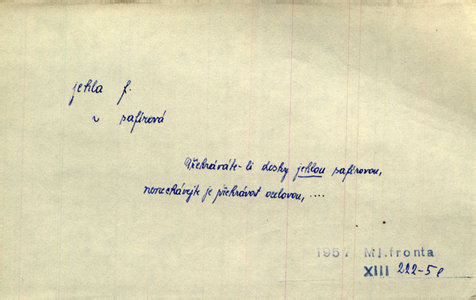 jehla f.
~ safírová
Přehráváte-li desky jehlou safírovou,
nenechávejte je přehrávat ocelovou, ....
1957 Ml. fronta
XIII 222-5e